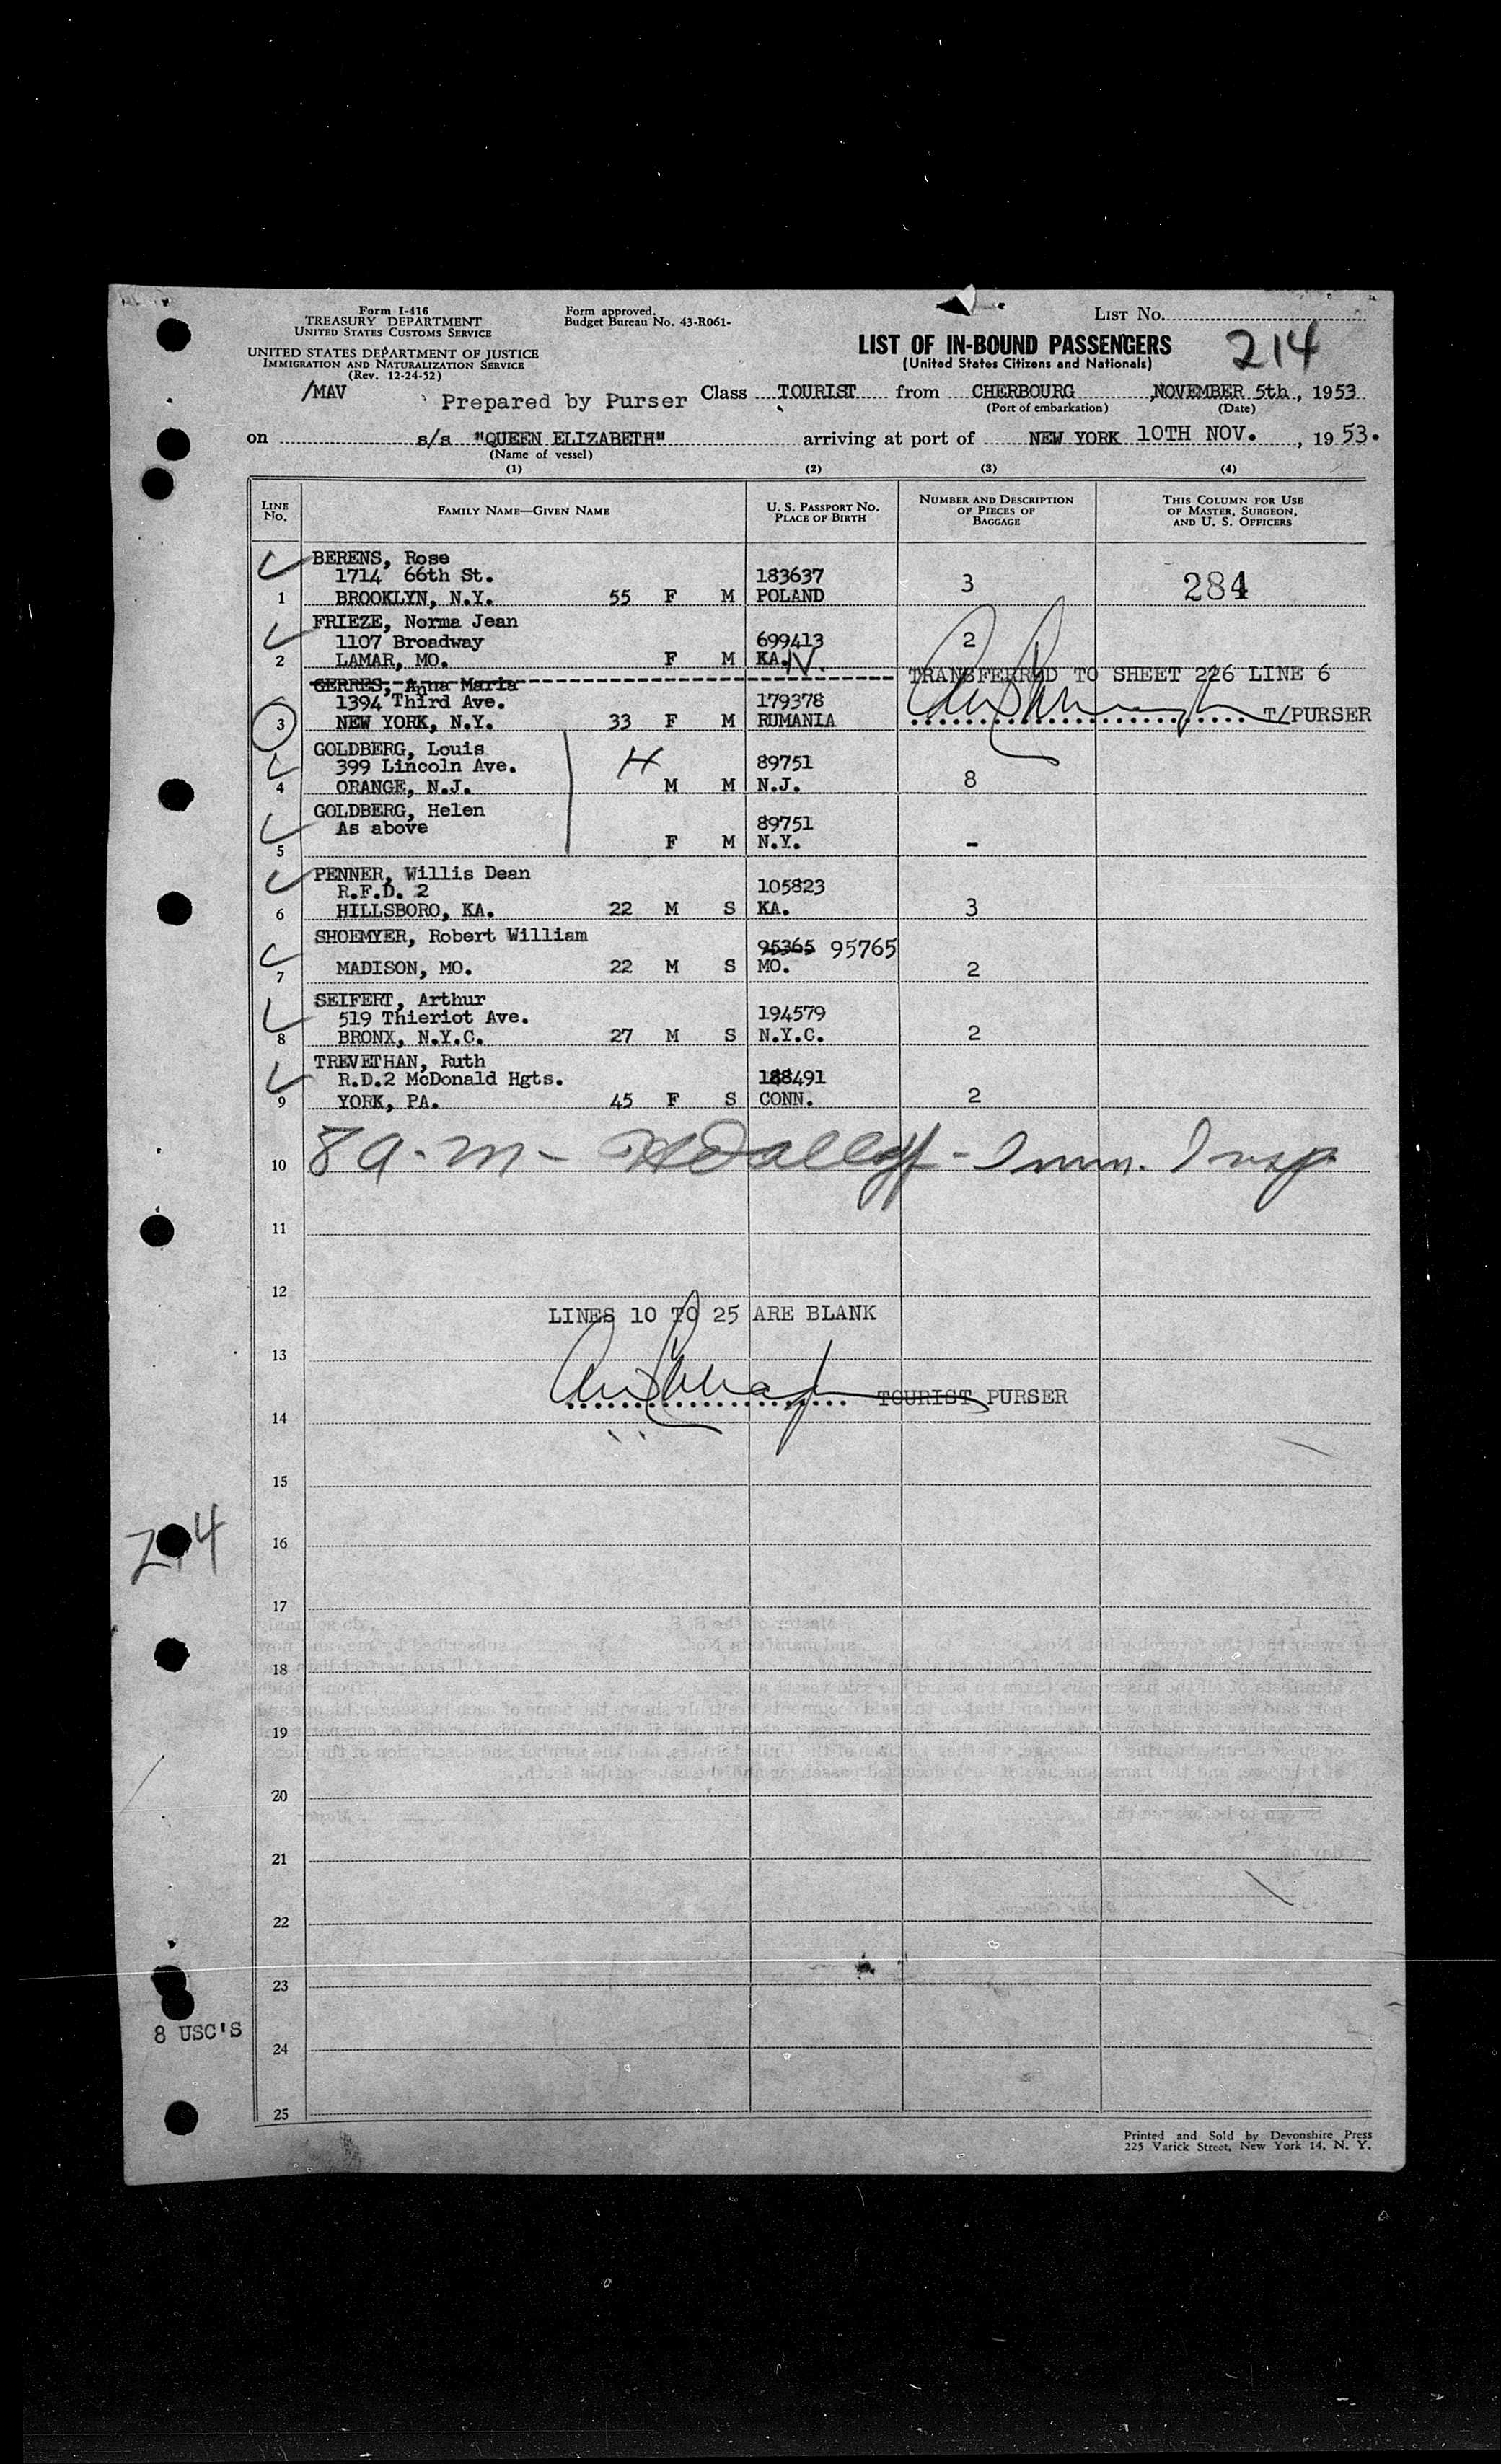 Form I-416
TREASURY DEPARTMENT
UNITED STATES CUSTOMS SERVICE
UNITED STATES DEPARTMENT OF JUSTICE
IMMIGRATION AND NATURALIZATION SERVICE
(Rev. 12-24-52)
/MAV
Form approved.
Budget Bureau No. 43-R061-
LIST NO.
214
LIST OF IN-BOUND PASSENGERS
(United States Citizens and Nationals)
Prepared by Purser Class TOURIST from CHERBOURG , NOVEMBER 5th , 1953
(Port of embarkation) (Date)
on s/s "QUEEN ELIZABETH" arriving at port of NEW YORK 10TH NOV. , 19 53.
(Name of vessel)
(1) (2) (3) (4)
LINE NO. FAMILY NAME—GIVEN NAME U. S. PASSPORT NO. PLACE OF BIRTH NUMBER AND DESCRIPTION OF PIECES OF BAGGAGE THIS COLUMN FOR USE OF MASTER, SURGEON, AND U. S. OFFICERS
BERENS, Rose
1714 66th St. 183637 3 284
1 BROOKLYN, N.Y. 55 F M POLAND
FRIEZE, Norma Jean
1107 Broadway 699413 2
2 LAMAR, MO. F M KA.N.
GERRES, Anna Maria TRANSFERRED TO SHEET 226 LINE 6
1394 Third Ave. 179378
3 NEW YORK, N.Y. 33 F M RUMANIA T/PURSER
GOLDBERG, Louis H
399 Lincoln Ave. 89751 8
4 ORANGE, N.J. M M N.J.
GOLDBERG, Helen
As above 89751
5 F M N.Y. -
PENNER, Willis Dean
R.F.D. 2 105823
6 HILLSBORO, KA. 22 M S KA. 3
SHOEMYER, Robert William
95365 95765
7 MADISON, MO. 22 M S MO. 2
SEIFERT, Arthur
519 Thieriot Ave. 194579
8 BRONX, N.Y.C. 27 M S N.Y.C. 2
TREVETHAN, Ruth
R.D.2 McDonald Hgts. 188491
9 YORK, PA. 45 F S CONN. 2
10 8 a.m - - Imm. Insp
11
12
LINES 10 TO 25 ARE BLANK
13
TOURIST PURSER
14
15
214
16
17
18
19
20
21
22
23
8 USC'S
24
25
Printed and Sold by Devonshire Press
225 Varick Street, New York 14, N. Y.